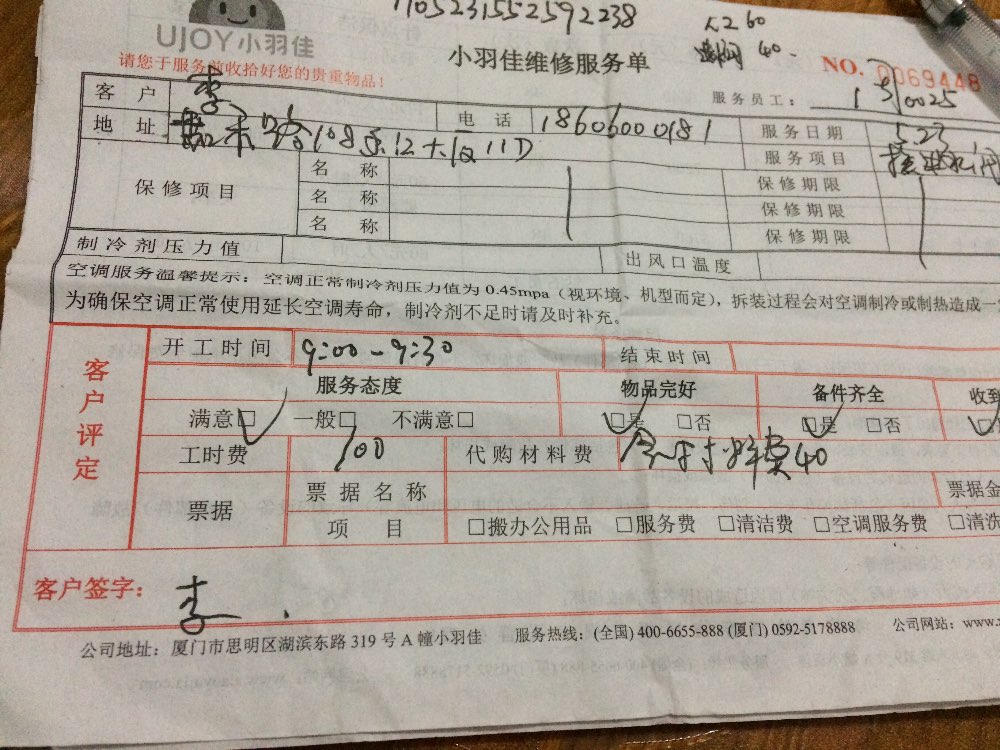 1705231552592238
人260
40.
UJOY小羽佳
小羽佳维修服务单
请您于服务前收拾好您的贵重物品！
NO. 0069448
服务员工：
客户 李 电话 18606000181 服务日期 5.23
地址 嘉禾路 服务项目
保修项目 名称 保修期限
名称 保修期限
名称 保修期限
制冷剂压力值 出风口温度
空调服务温馨提示：空调正常制冷剂压力值为 0.45mpa（视环境、机型而定），拆装过程会对空调制冷或制热造成一
为确保空调正常使用延长空调寿命，制冷剂不足时请及时补充。
客户评定
开工时间 9:00-9:30 结束时间
服务态度 物品完好 备件齐全 收到
满意□ 一般□ 不满意□ □是 □否 □是 □否
工时费 100 代购材料费 材料费40
票据 票据名称 票据金
项目 □搬办公用品 □服务费 □清洁费 □空调服务费 □清洗
客户签字： 李
公司地址：厦门市思明区湖滨东路 319 号 A 幢小羽佳 服务热线：(全国) 400-6655-888 (厦门) 0592-5178888 公司网站：www.